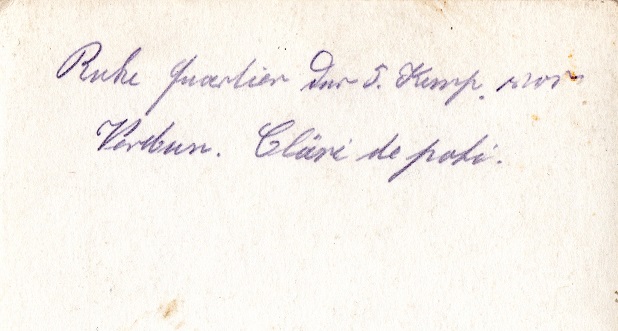 Ruhe Quartier der 5. Komp. vor
Verdun. Cläri de poti.